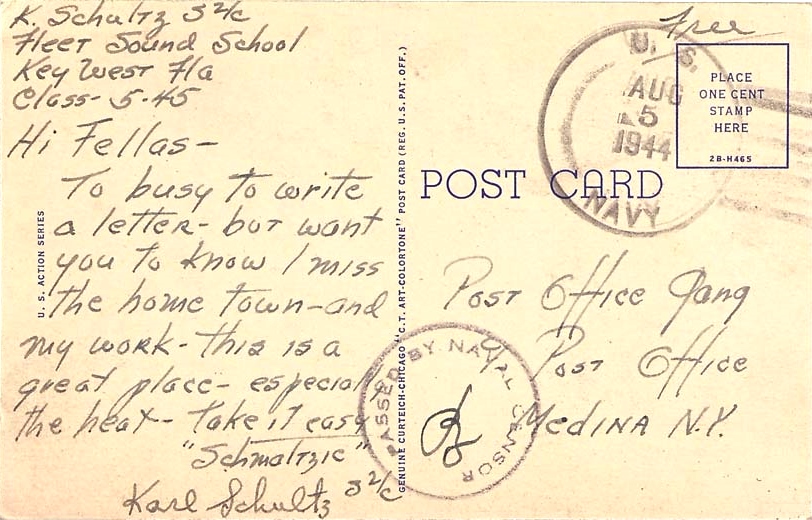 K. Schultz S 2/c
Fleet Sound School
Key West Fla
Class- 5-45
Hi Fellas-
To busy to write
a letter- but want
you to know I miss
the home town-and
my work- this is a
great place- especially
the heat- Take it easy
"Schmaltzie"
Karl Schultz S 2/c
U. S. ACTION SERIES
GENUINE CURTEICH-CHICAGO "C.T. ART-COLORTONE" POST CARD (REG. U. S. PAT. OFF.)
POST CARD
Free
U. S.
AUG
5
1944
NAVY
PLACE
ONE CENT
STAMP
HERE
2B-H465
Post Office Gang
% Post Office
Medina N.Y.
PASSED BY NAVAL CENSOR